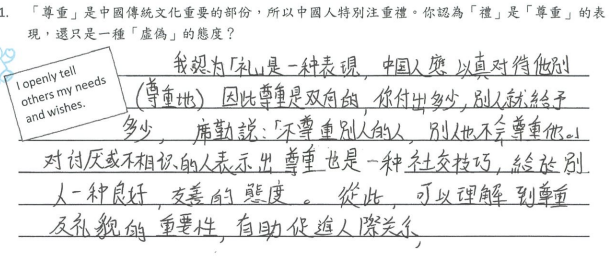 1. 「尊重」是中國傳統文化重要的部份，所以中國人特別注重禮。你認為「禮」是「尊重」的表
現，還只是一種「虛偽」的態度？
I openly tell
others my needs
and wishes.
我認为「礼」是一种表現，中国人應以真对待他別
(尊重地) 因此尊重是双向的，你付出多少，別人就給予
多少， 席勤說：「不尊重別人的人，別人也不会尊重他。」
对讨厌或不相识的人表示出尊重也是一种社交技巧，給於別
人一种良好，友善的態度。從此，可以理解到尊重
及礼貌的重要性，有助促進人際关系，